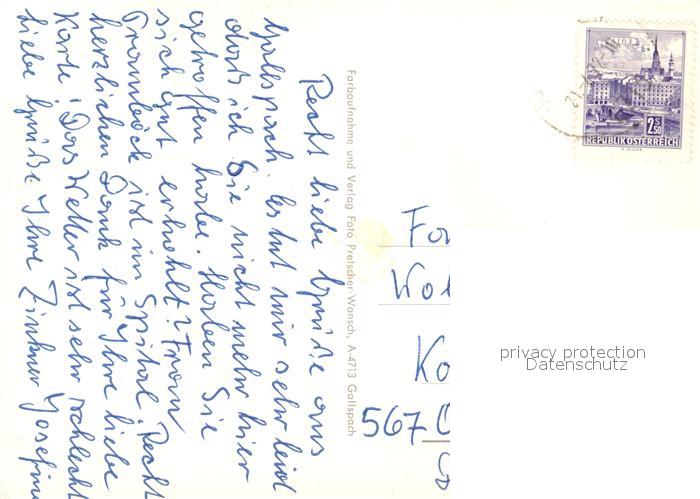 Recht liebe Grüße aus
Gallspach. Es tut mir sehr leid
daß ich Sie nicht mehr hier
getroffen habe. Haben Sie
sich gut erhohlt? Frau
ist im Spital. Recht
herzlichen Dank für Ihre liebe
Karte! Das Wetter ist sehr schlecht
Liebe Grüße Ihre Zinkner Josefine
Farbaufnahme und Verlag Foto Pretscher-Wansch, A-4713 Gallspach
LINZ
2 S 50
REPUBLIK ÖSTERREICH
Wol
Ko
567
privacy protection
Datenschutz